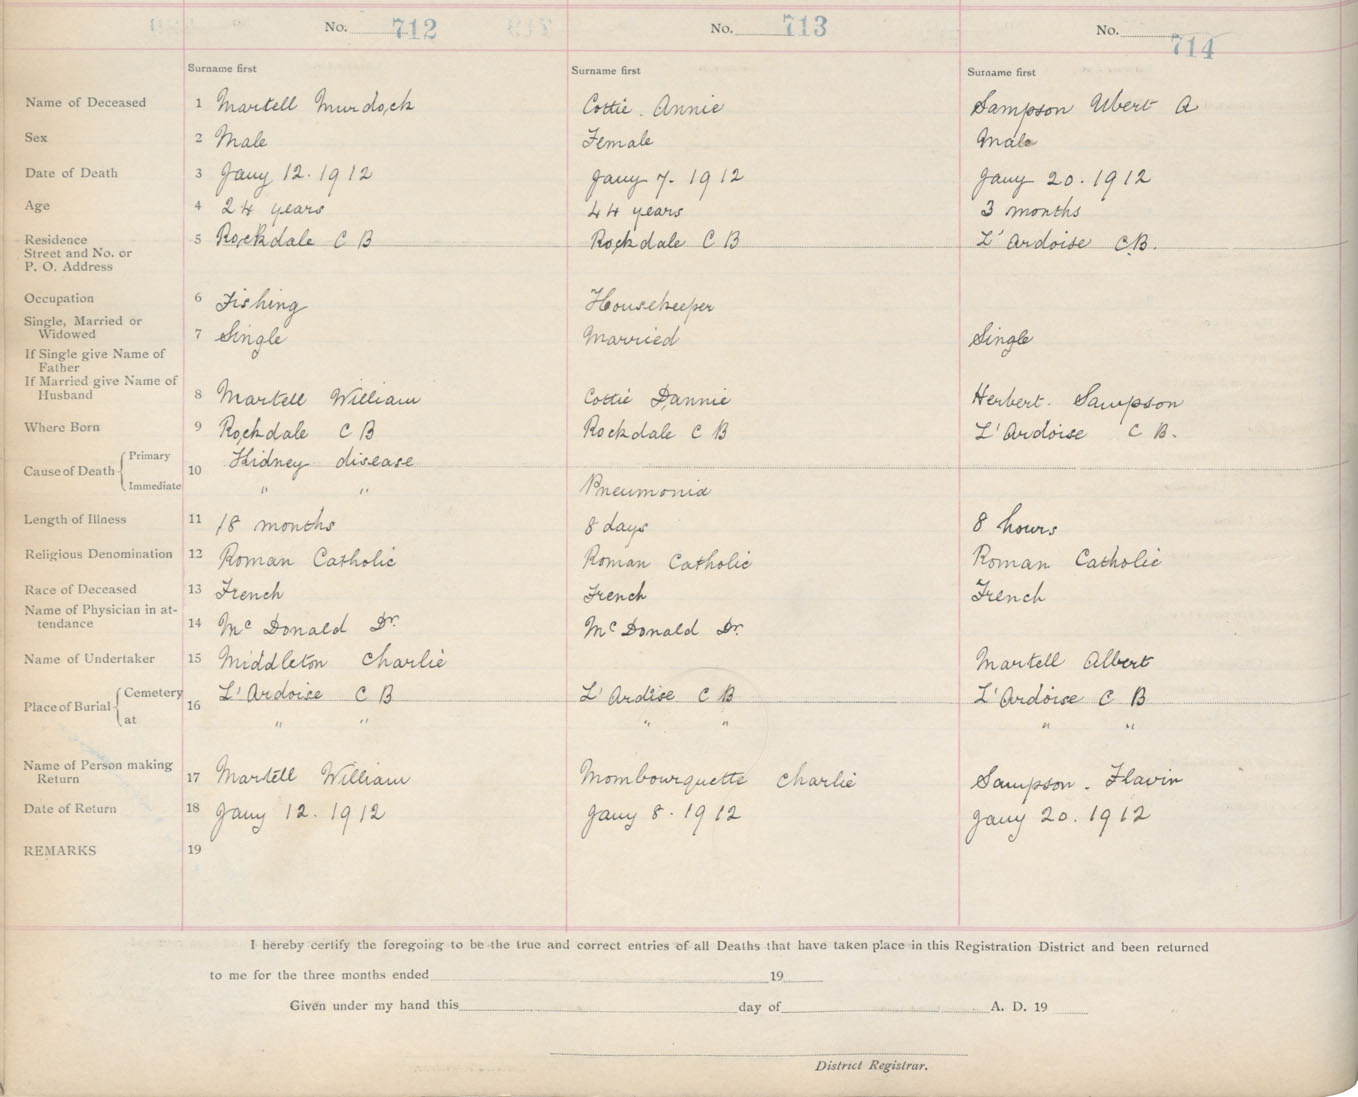 No. 712 No. 713 No. 714
Surname first Surname first Surname first
Name of Deceased 1 Martell Murdock Cottie. Annie Sampson Ubert A
Sex 2 Male Female Male
Date of Death 3 Jany 12. 1912 Jany 7. 1912 Jany 20. 1912
Age 4 24 years 44 years 3 months
Residence 5 Rockdale C B Rockdale C B L'Ardoise C.B.
Street and No. or
P. O. Address
Occupation 6 Fishing Housekeeper
Single, Married or
Widowed 7 Single Married Single
If Single give Name of
Father
If Married give Name of
Husband 8 Martell William Cottie Dannie Herbert. Sampson
Where Born 9 Rockdale C B Rockdale C B L'Ardoise C B.
Cause of Death 10 Primary Kidney disease
Immediate " " Pneumonia
Length of Illness 11 18 months 8 days 8 hours
Religious Denomination 12 Roman Catholic Roman Catholic Roman Catholic
Race of Deceased 13 French French French
Name of Physician in at-
tendance 14 McDonald Dr. McDonald Dr.
Name of Undertaker 15 Middleton Charlie Martell Albert
Place of Burial 16 Cemetery L'Ardoise C B L'Ardise C B L'Ardoise C B
at " " " " " "
Name of Person making
Return 17 Martell William Mombourquette Charlie Sampson. Flavin
Date of Return 18 Jany 12. 1912 Jany 8. 1912 Jany 20. 1912
REMARKS 19
I hereby certify the foregoing to be the true and correct entries of all Deaths that have taken place in this Registration District and been returned
to me for the three months ended 19
Given under my hand this day of A. D. 19
District Registrar.